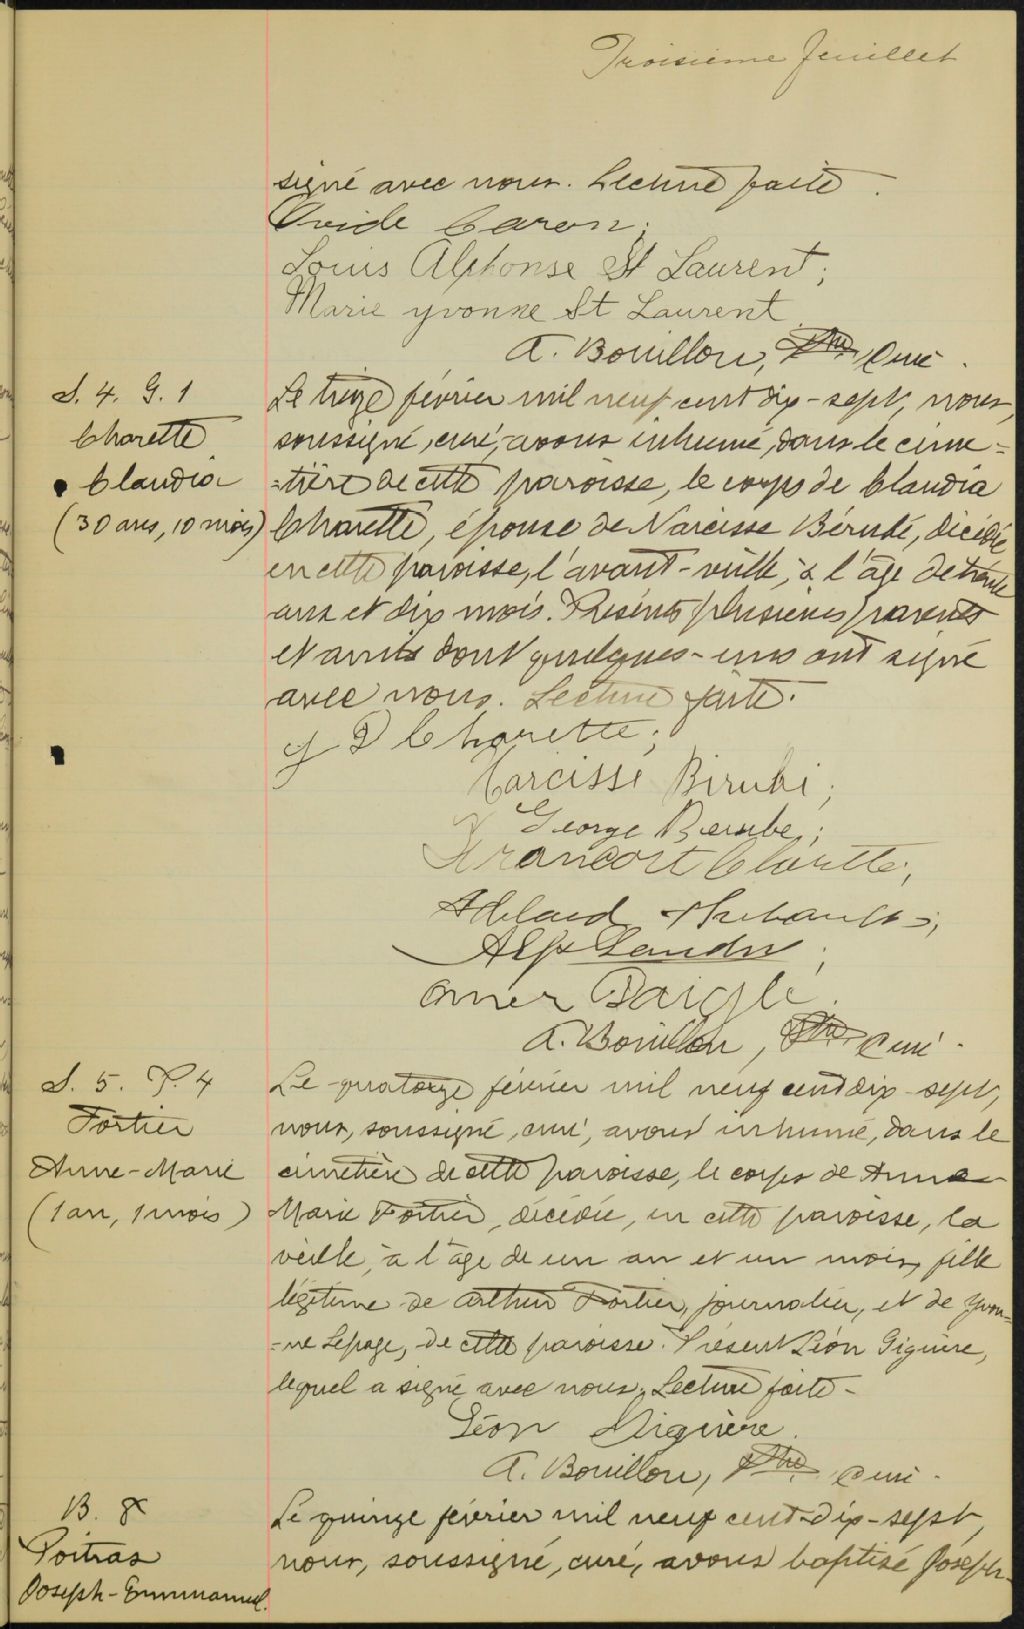 Troisième feuillet
signé avec nous. Lecture faite.
Ovide Caron;
Louis Alphonse St Laurent;
Marie yvonne St Laurent
A. Bouillon, Ptre, Curé.
S. 4. G. 1
Charette
Claudia
(30 ans, 10 mois)
Le treize février mil neuf cent dix-sept, nous,
soussigné, curé, avons inhumé, dans le cime=
=tière de cette paroisse, le corps de Claudia
Charette, épouse de Narcisse Bérubé, décédée
en cette paroisse, l'avant-veille, à l'âge de trente
ans et dix mois. Présents plusieurs parents
et amis dont quelques-uns ont signé
avec nous. Lecture faite.
J D Charette;
Narcisse Birubi;
George Berube;
Charette;
Adelard Thibault;
Alf Landry;
Omer Daigle.
A. Bouillon, Ptre, Curé.
S. 5. P. 4
Fortier
Anne-Marie
(1 an, 1 mois)
Le quatorze février mil neuf cent dix-sept,
nous, soussigné, curé, avons inhumé, dans le
cimetière de cette paroisse, le corps de Anne-
Marie Fortier, décédée, en cette paroisse, la
veille, à l'âge de un an et un mois, fille
légitime de Arthur Fortier, journalier, et de Yvon=
=ne Lepage, de cette paroisse. Présent Léon Giguère,
lequel a signé avec nous. Lecture faite-
Léon Giguère.
A. Bouillon, Ptre, Curé.
B. 8
Poitras
Joseph-Emmanuel.
Le quinze février mil neuf cent-dix-sept,
nous, soussigné, curé, avons baptisé Joseph-